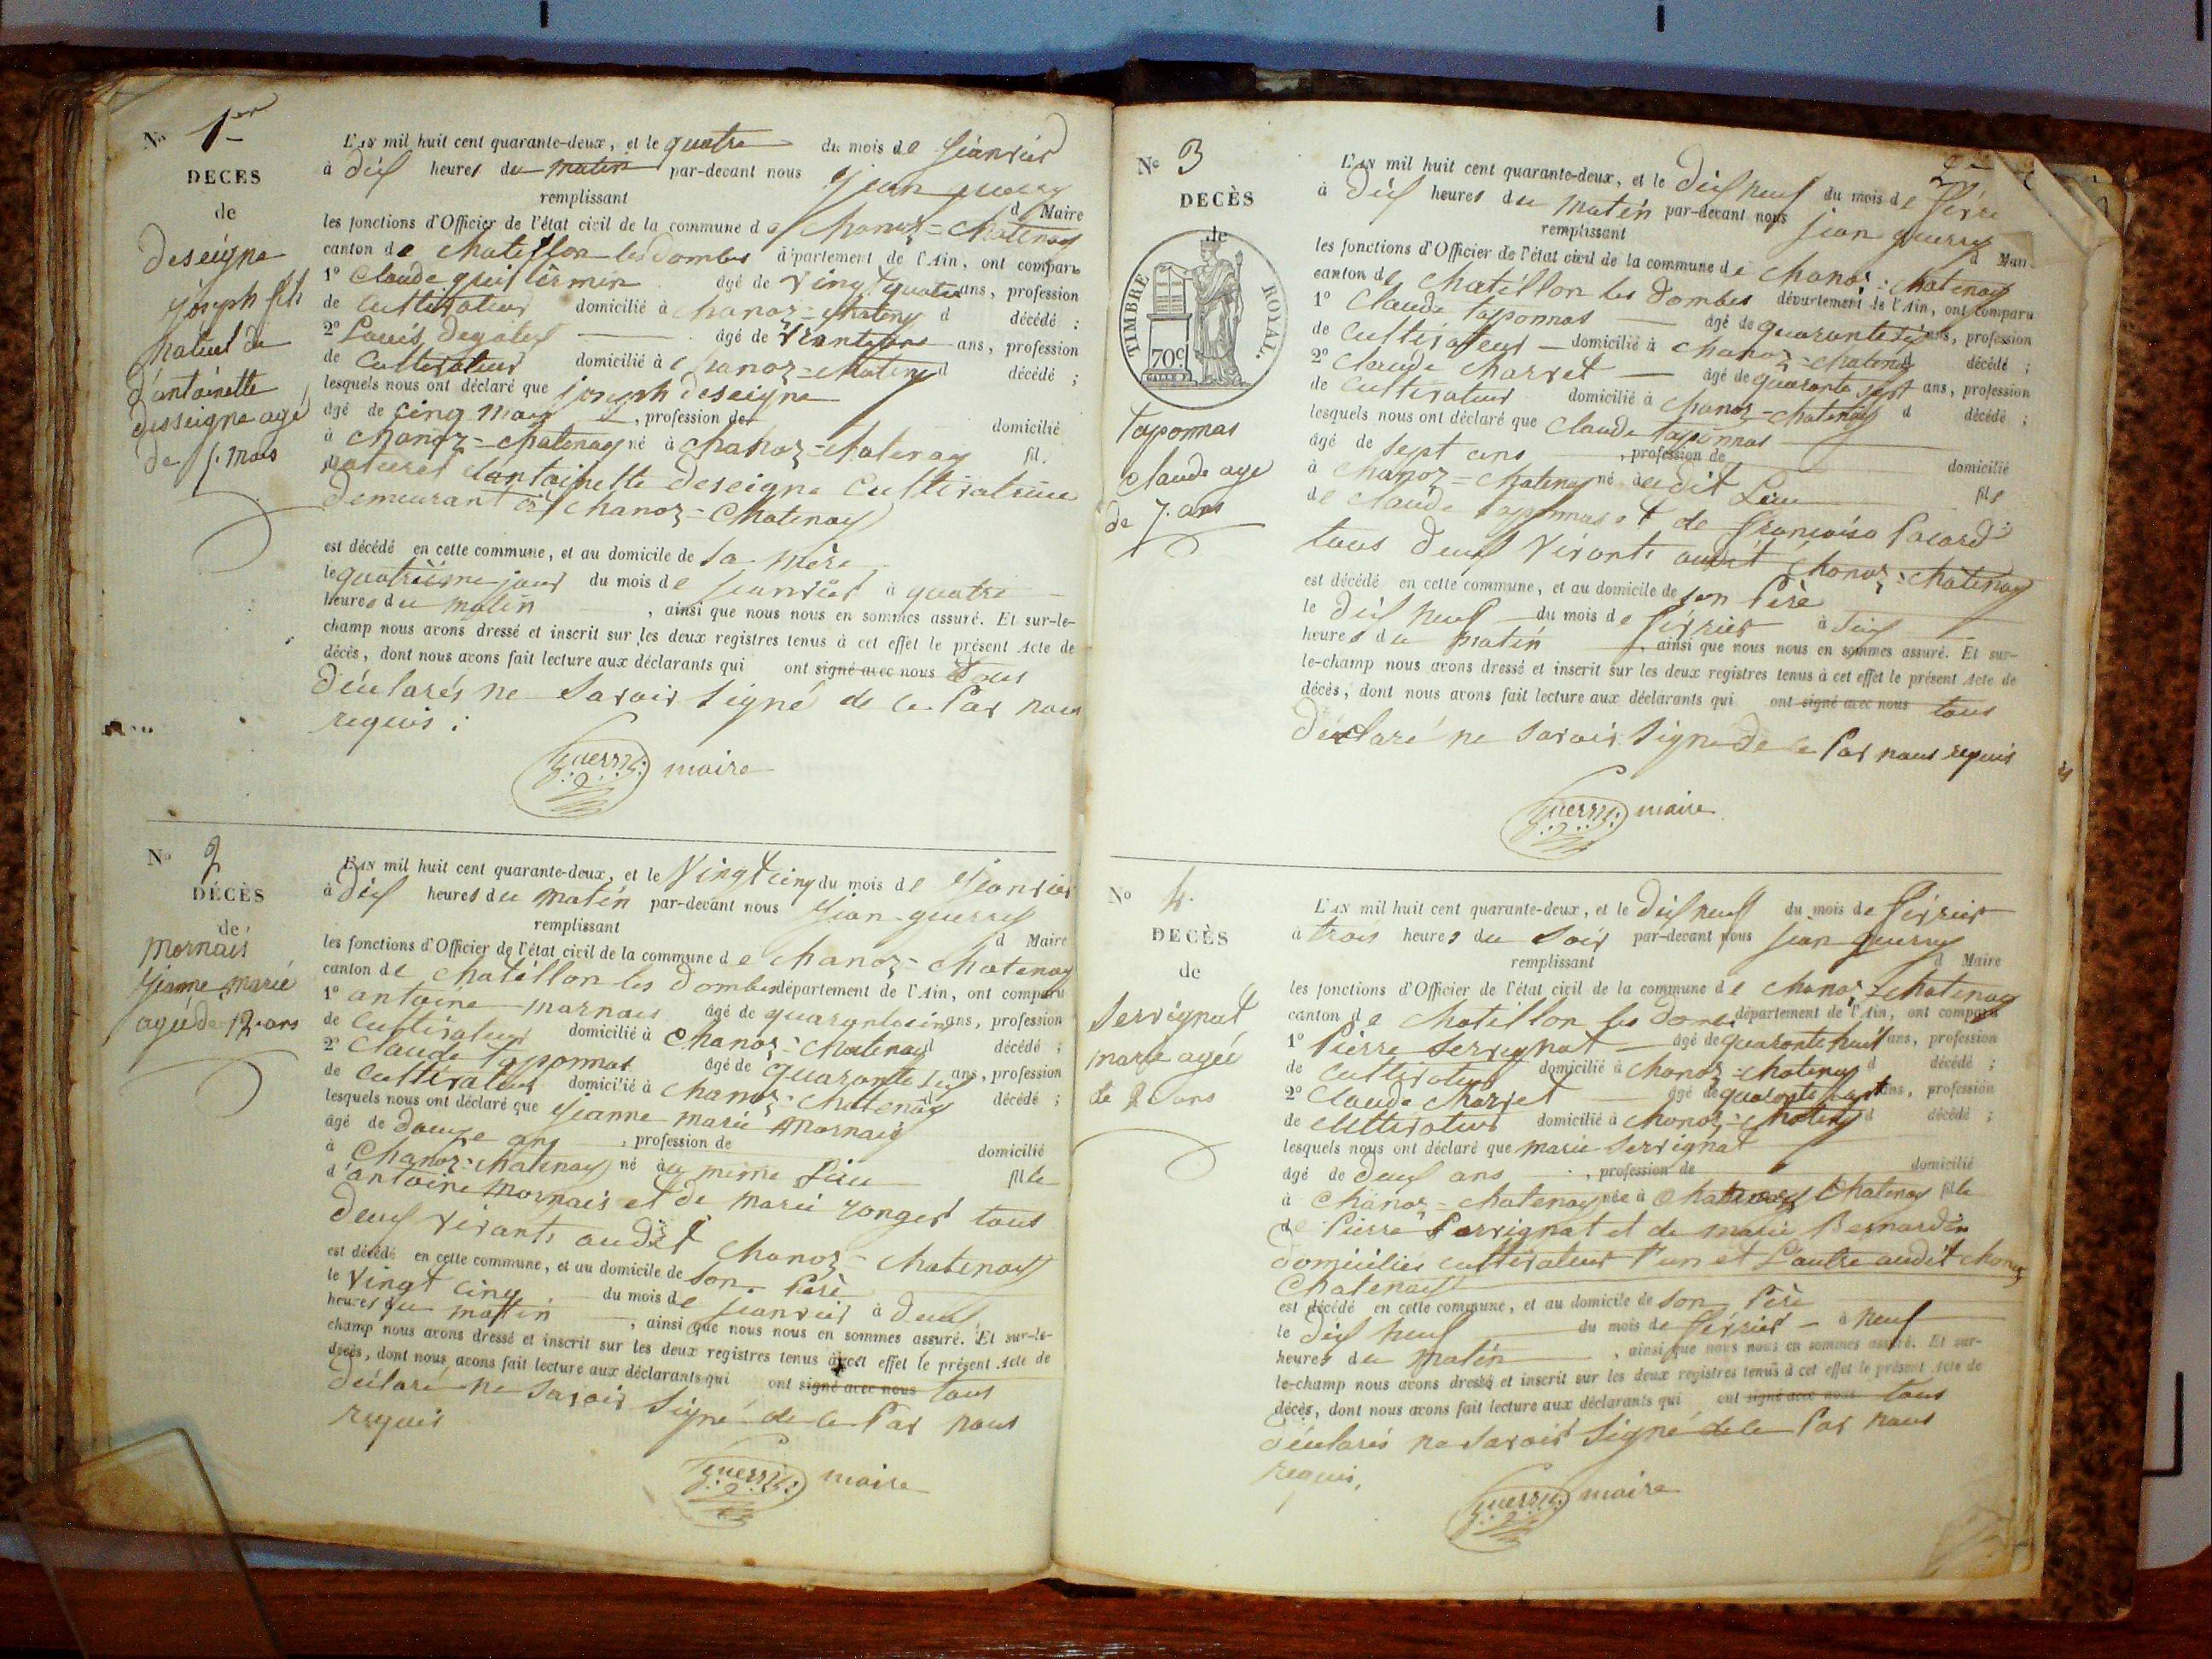 No 1er
DECES
de
deseigne
joseph fils
naturel de
d'antoinette
desseigne agé
de 5. mois
L'AN mil huit cent quarante-deux, et le quatre du mois de jeanvier
à dix heures du matin par-devant nous jean guerry
remplissant d Maire
les fonctions d'Officier de l'état civil de la commune de Chanoz=Chatenay
canton de Chatillon les Dombes département de l'Ain, ont comparu
1o Claude agé de vingt quatre ans, profession
de Cultivateur domicilié à Chanoz=Chatenay d décédé ;
2o Louis âgé de ans, profession
de Cultivateur domicilié à Chanoz=Chatenay d décédé ;
lesquels nous ont déclaré que joseph deseigne
âgé de cinq mois, profession de domicilié
à Chanoz=Chatenay né à Chanoz=Chatenay fil.
naturel d'antoinette deseigne Cultivatrice
demeurant à Chanoz=Chatenay
est décédé en cette commune, et au domicile de sa mère
le quatrième jour du mois de jeanvier à quatre
heures du matin, ainsi que nous nous en sommes assuré. Et sur-le-
champ nous avons dressé et inscrit sur les deux registres tenus à cet effet le présent Acte de
décès, dont nous avons fait lecture aux déclarants qui ont signé avec nous tous
déclarés ne savoir signé de ce par nous
requis :
Guerry maire
No 2
DÉCÈS
de
Mornais
jeanne marie
agée de 12. ans
L'AN mil huit cent quarante-deux, et le Vingt cinq du mois de jeanvier
à dix heures du matin par-devant nous jean guerry
remplissant d Maire
les fonctions d'Officier de l'état civil de la commune de Chanoz=Chatenay
canton de Chatillon les Dombes département de l'Ain, ont comparu
1o antoine mornais âgé de quarante cinq ans, profession
de Cultivateur domicilié à Chanoz=Chatenay d décédé ;
2o Claude Taponnas âgé de quarante six ans, profession
de Cultivateur domicilié à Chanoz=Chatenay d décédé ;
lesquels nous ont déclaré que jeanne marie Mornais
âgé de douze ans, profession de domicilié
à Chanoz=Chatenay né au même Lieu fille
d'antoine Mornais et de marie ronger tous
deux vivants audit Chanoz=Chatenay
est décédé en cette commune, et au domicile de son Père
le Vingt cinq du mois de jeanvier à deux
heures du matin, ainsi que nous nous en sommes assuré. Et sur-le-
champ nous avons dressé et inscrit sur les deux registres tenus à cet effet le présent Acte de
décès, dont nous avons fait lecture aux déclarants qui ont signé avec nous tous
déclaré ne savoir signé de ce Par nous
requis
Guerry maire
No 3
DÉCÈS
de
TIMBRE ROYAL.
70c
Taponnas
Claude age
de 7. ans
L'AN mil huit cent quarante-deux, et le dix neuf du mois de
à dix heures du matin par-devant nous jean guerry
remplissant d
les fonctions d'Officier de l'état civil de la commune de Chanoz=Chatenay
canton de Chatillon les Dombes département de l'Ain, ont comparu
1o Claude Taponnas âgé de quarante six ans, profession
de Cultivateur domicilié à Chanoz=Chatenay d décédé ;
2o Claude Charvet âgé de quarante sept ans, profession
de Cultivateur domicilié à Chanoz=Chatenay d décédé ;
lesquels nous ont déclaré que Claude taponnas
âgé de sept ans, profession de domicilié
à Chanoz=Chatenay né audit Lieu fils
de Claude taponnas et de françoise Pacard
tous deux vivants audit Chanoz=Chatenay
est décédé en cette commune, et au domicile de son Père
le dix neuf du mois de fevrier à
heures du matin, ainsi que nous nous en sommes assuré. Et sur-
le-champ nous avons dressé et inscrit sur les deux registres tenus à cet effet le présent Acte de
décès, dont nous avons fait lecture aux déclarants qui ont signé avec nous tous
déclaré ne savoir signé de ce Par nous requis
Guerry maire
No 4.
DÉCÈS
de
Servignat
marie agée
de 2 ans
L'AN mil huit cent quarante-deux, et le dix neuf du mois de fevrier
à trois heures du soir par-devant nous jean guerry
remplissant d Maire
les fonctions d'Officier de l'état civil de la commune de Chanoz=Chatenay
canton de Chatillon les Dombes département de l'Ain, ont comparu
1o Pierre Servignat âgé de quarante huit ans, profession
de Cultivateur domicilié à Chanoz=Chatenay d décédé ;
2o Claude Charvet âgé de quarante sept ans, profession
de Cultivateur domicilié à Chanoz=Chatenay d décédé ;
lesquels nous ont déclaré que marie Servignat
âgé de deux ans, profession de domicilié
à Chanoz=Chatenay née à Chatenay fille
de Pierre Servignat et de marie Bernardin
domiciliés cultivateur l'un et L'autre audit Chanoz
Chatenay
est décédé en cette commune, et au domicile de son Père
le dix neuf du mois de fevrier à neuf
heures du matin, ainsi que nous nous en sommes assuré. Et sur-
le-champ nous avons dressé et inscrit sur les deux registres tenus à cet effet le présent Acte de
décès, dont nous avons fait lecture aux déclarants qui ont signé avec nous tous
déclarés ne savoir signé de ce Par nous
requis,
Guerry maire